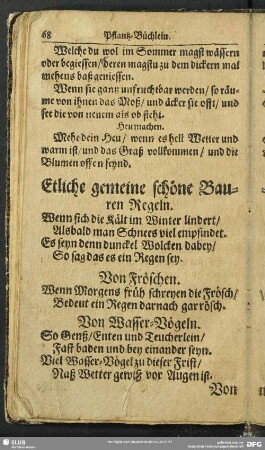 68 Pflantz-Büchlein.
Welche du wol im Sommer magst wässern
oder begiessen/ deren magstu zu dem dickern mal
wehens baß geniessen.
Wenn sie gantz unfruchtbar werden/ so räu-
me von ihnen das Moß/ und äcker sie offt/ und
setz die von neuem als ob steht.
Heu machen.
Mehe dein Heu/ wenn es hell Wetter und
warm ist/ und das Graß vollkommen/ und die
Blumen offen seynd.
Etliche gemeine schöne Bau-
ren Regeln.
Wenn sich die Kält im Winter lindert/
Alsbald man Schnees viel empfindet.
Es seyn denn dunckel Wolcken dabey/
So sag das es ein Regen sey.
Von Fröschen.
Wenn Morgens früh schreyen die Frösch/
Bedeut ein Regen darnach gar rösch.
Von Wasser-Vögeln.
So Genß/ Enten und Teucherlein/
Fast baden und bey einander seyn.
Viel Wasser-Vögel zu dieser Frist/
Naß Wetter gewiß vor Augen ist.
Von
SLUB
DFG